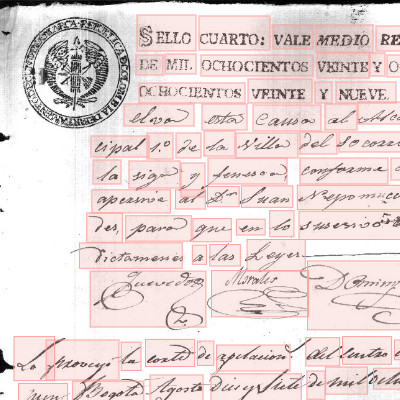 SELLO CUARTO: VALE MEDIO RE
DE MIL OCHOCIENTOS VEINTE Y O
OCHOCIENTOS VEINTE Y NUEVE.
elva esta causa al
cipal 1.º de la Villa del Socorro
la siga y fenesca, conforme
apersive al D.r Juan Nepomuce
des, para que en lo sucesivo
dictamenes a las Leyes.
Quevedo Morales
Lo proveyó la corte de apelacion.s del centro
Bogotá Agosto Dies y siete de mil ocho